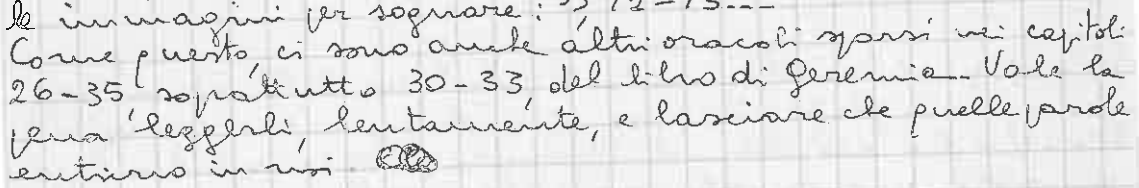 le immagini per sognare: 
Come questo, ci sono anche altri oracoli sparsi nei capitoli
26-35, soprattutto 30-33, del libro di Geremia. Vale la
pena leggerli, lentamente, e lasciare che quelle parole
entrino in noi.